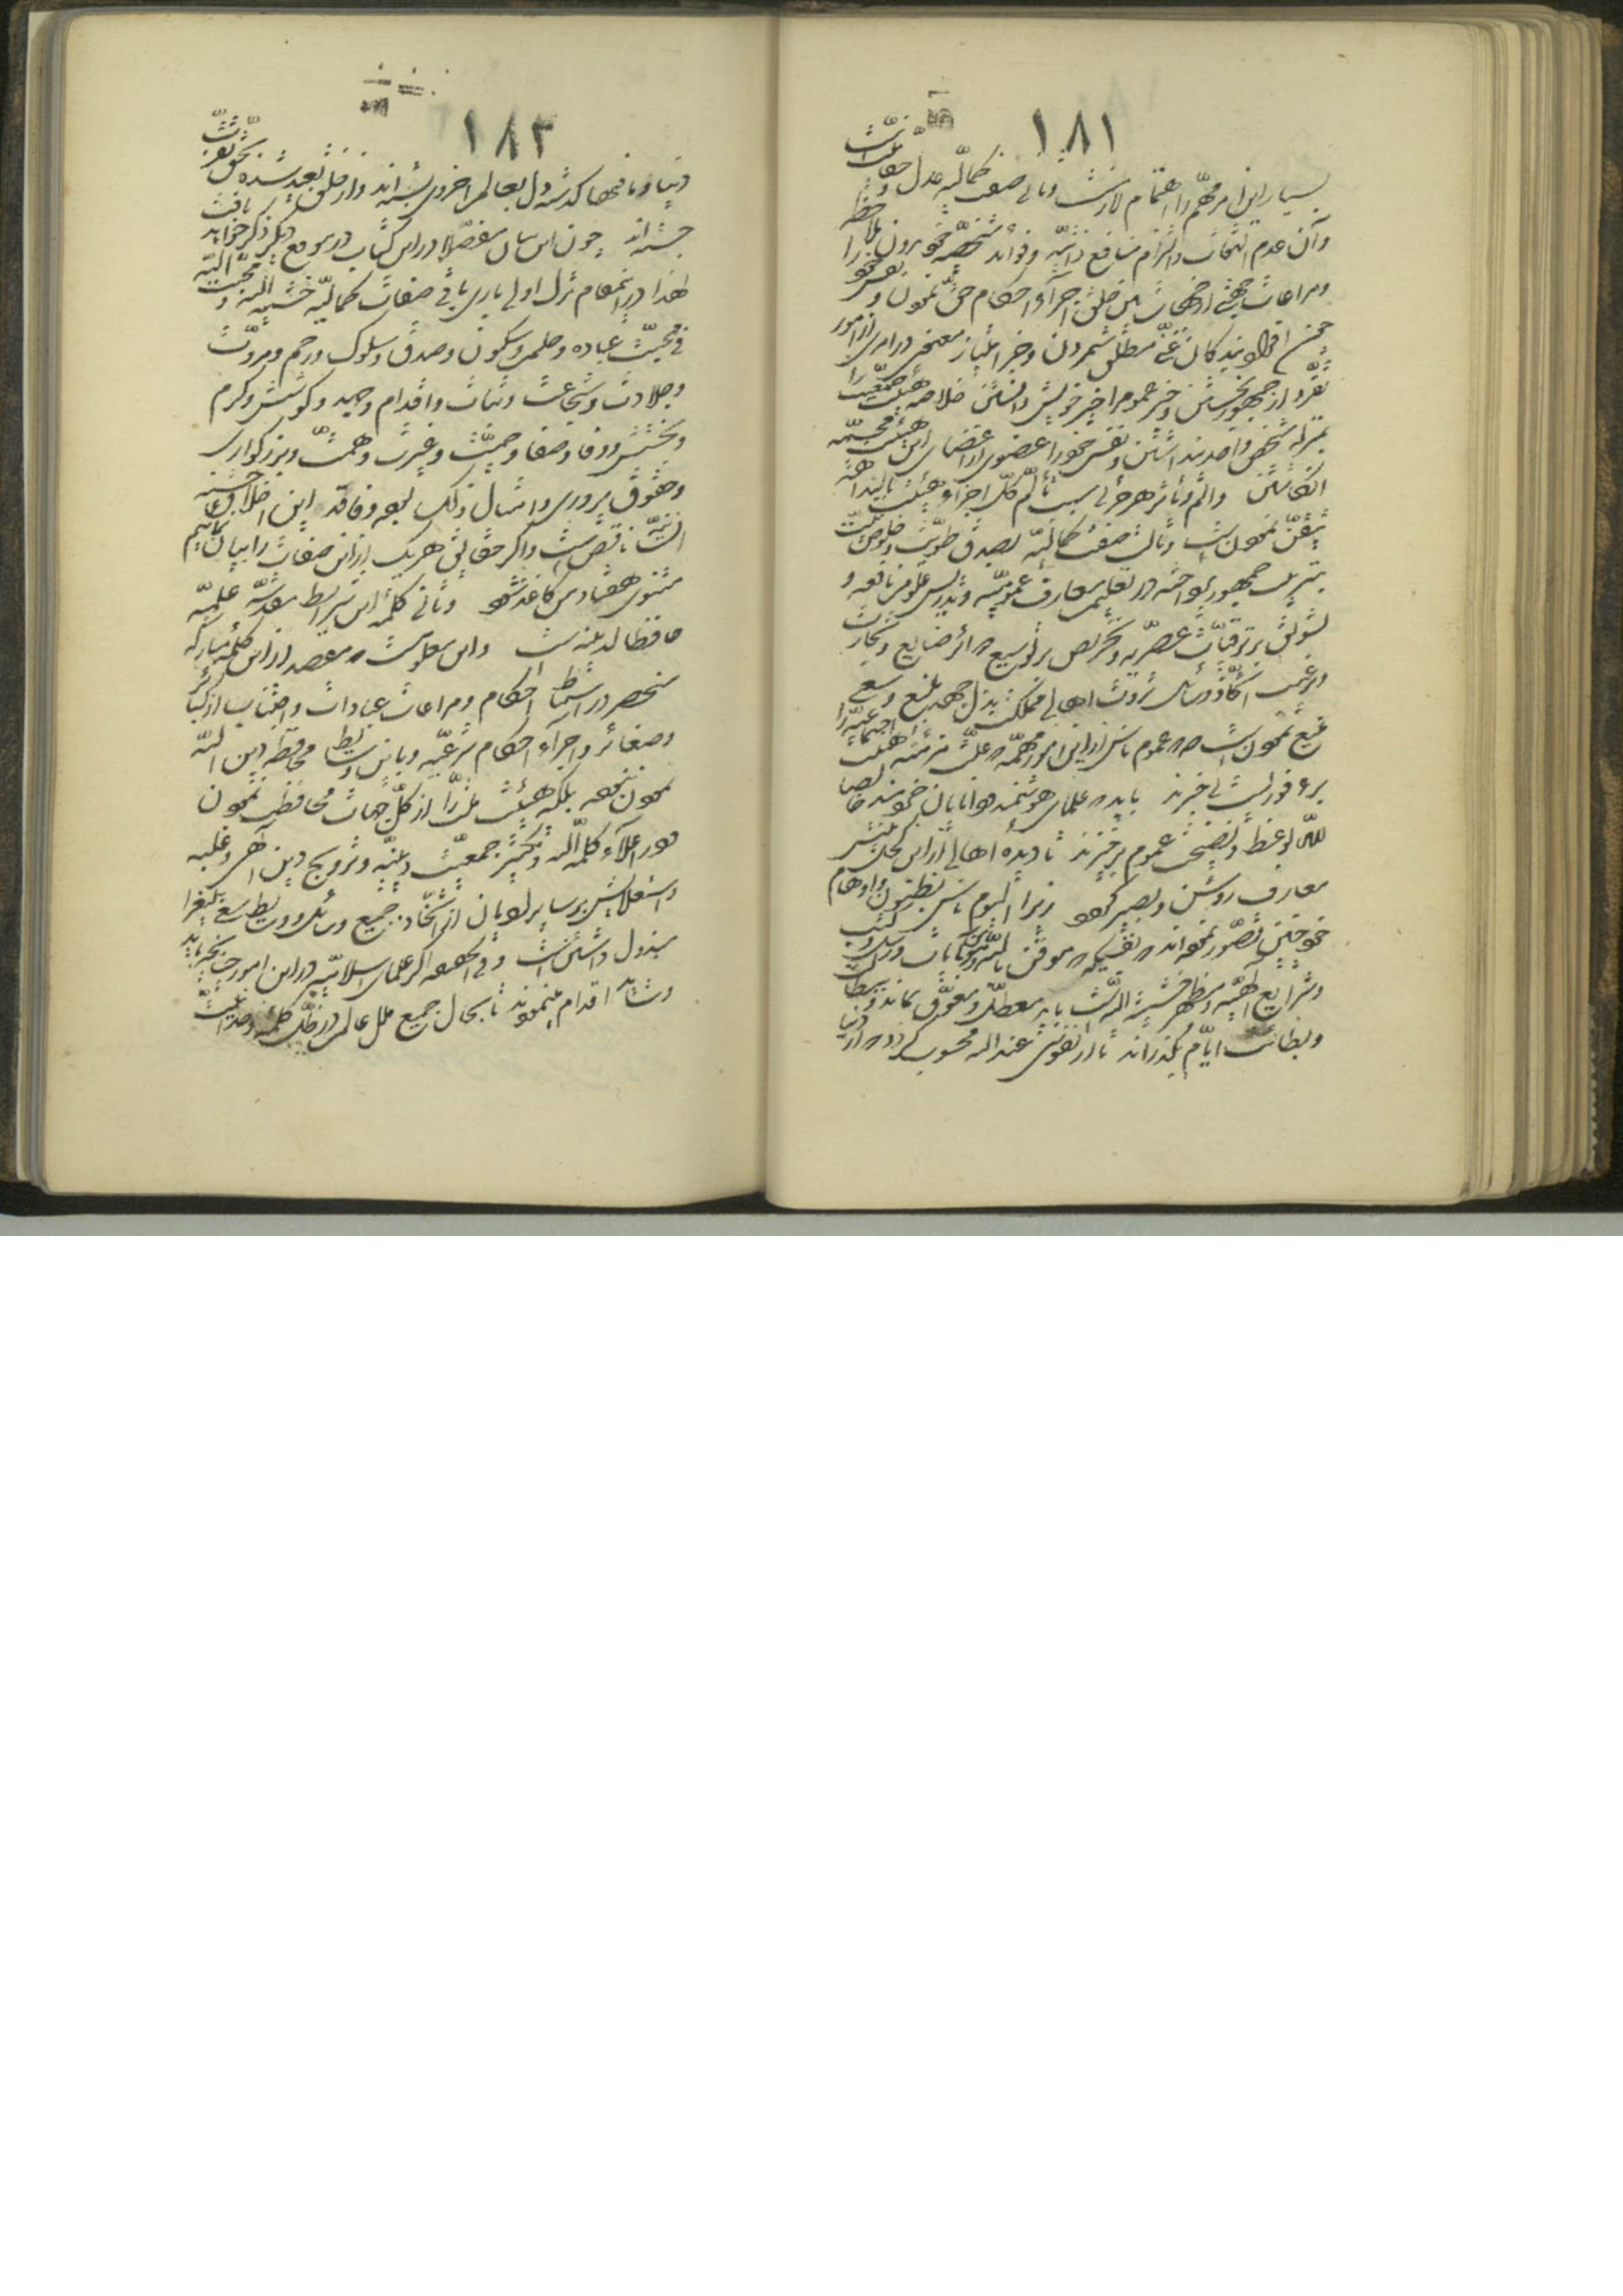 ۱۸۱
بسیار این امر مهمّ را اهتمام لازمست و ثانی صفت کمالیّه عدل و حقّانیّت است
و آن عدم التفات و التزام منافع ذاتیّه و فوائد شخصیّه خود و بدون ملاحظه
و مراعات جهتی از جهات بین خلق اجرای احکام حقّ نمودن و نفس خود را
چون افراد بندگان غنیّ مطلق شمردن و جز امتیاز معنوی در امری از امور
تفرّد از جمهور نجستن و خیر عموم را خیر خویش دانستن خلاصه هیئت جمعیّت را
بمنزله شخص واحد پنداشتن و نفس خود را عضوی از اعضای این هیئت مجسّمه
انگاشتن و الم و تأثّر هر جزئی سبب تألّم کلّ اجزاء هیئت بالبداهه
تیقّن نمودن است و ثالث صفت کمالیّه بصدق طویّت و خلوص نیّت
بتربیت جمهور پرداختن در تعلیم معارف عمومیّه و تدریس علوم نافعه و
تشویق بر ترقّیات عصریّه و تحریص بر توسیع دوائر صنایع و تجارت
و ترغیب اتّخاذ وسائل ثروت اهالی مملکت بذل جهد بلیغ و سعی
منیع نمودن است چه که عموم ناس از این امور مهمّه که علّت مزمنه هیئت اجتماعیّه را
برء فوریست بی خبرند باید که علمای هوشمند و دانایان خردمند خالصاً
للّه بوعظ و نصیحت عموم برخیزند تا دیده اهالی از این کحل بینش
معارف روشن و بصیر گردد زیرا الیوم ناس بظنون و اوهام
خود چنین تصوّر نموده‌اند که نفسیکه موقن باللّه و مؤمن بآیات و رسل و کتب
و شرایع الهیّه و مظهر خشیة اللّه است باید معطّل و معوّق بماند و ببطالت
و بطائت ایّام بگذراند تا از نفوسی عند اللّه محسوب گردد که از دنیا
۱۸۲
دنیا و مافیها گذشته دل بعالم اخروی بسته‌اند و از خلق بعید شده بحقّ تقرّب
جسته‌اند چون این بیان مفصّلاً در این کتاب در موقع دیگر ذکر خواهد یافت
لهذا در این مقام ترک اولی باری باقی صفات کمالیّه خشیة اللّه و محبّت اللّه
فی محبّت عباده و حلم و سکون و صدق و سلوک و رحم و مروّت
و جلادت و شجاعت و ثبات و اقدام و جهد و کوشش و کرم
و بخشش و وفا و صفا و حمیّت و غیرت و همّت و بزرگواری
و حقوق پروری و امثال ذلک بوده و فاقد این اخلاق حسنه
انسانیّه ناقص است و اگر حقائق هر یک از این صفات را بیان نمائیم
مثنوی هفتاد من کاغذ شود و ثانی کلمه این شرایط مقدّسه علمیّه
حافظاً لدینه است و این معلوم است که مقصد از این کلمه مبارکه
منحصر در استنباط احکام و مراعات عبادات و اجتناب از کبائر
و صغائر و اجراء احکام شرعیّه و باین وسائط محافظه دین اللّه
نمودن نبوده بلکه هیئت ملّت را از کلّ جهات محافظت نمودن
و در اعلاء کلمة اللّه و تکثیر جمعیّت دینیّه و ترویج دین الهی و غلبه
و استعلایش بر سایر ادیان از اتّخاذ جمیع وسائل و وسائط سعی بلیغ را
مبذول داشتن است و فی الحقیقه اگر علمای اسلامیّه در این امور چنانچه باید
و شاید اقدام مینمودند تا بحال جمیع ملل عالم در ظلّ کلمه وحدانیّت